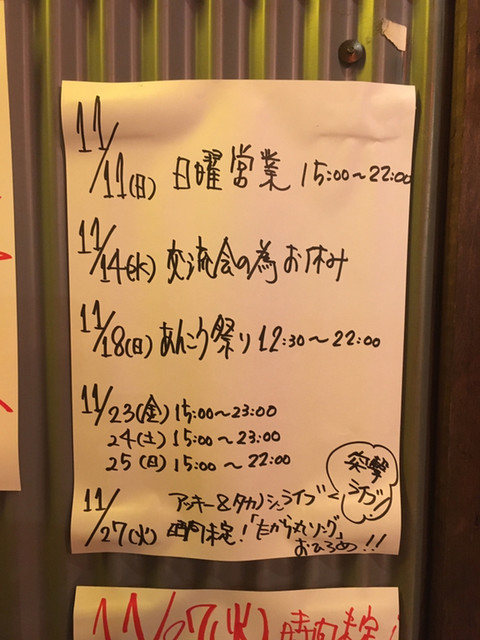 11/11(日) 日曜営業 15:00~22:00
11/14(水) 交流会の為お休み
11/18(日) あんこう祭り 12:30~22:00
11/23(金) 15:00~23:00
24(土) 15:00~23:00
25(日) 15:00~22:00
突撃
ライブ
アッキー&タカノシンライブ
11/27(火) 時間未定!「たから丸ソング」
おひろめ!!
11/27(火) 時間未定